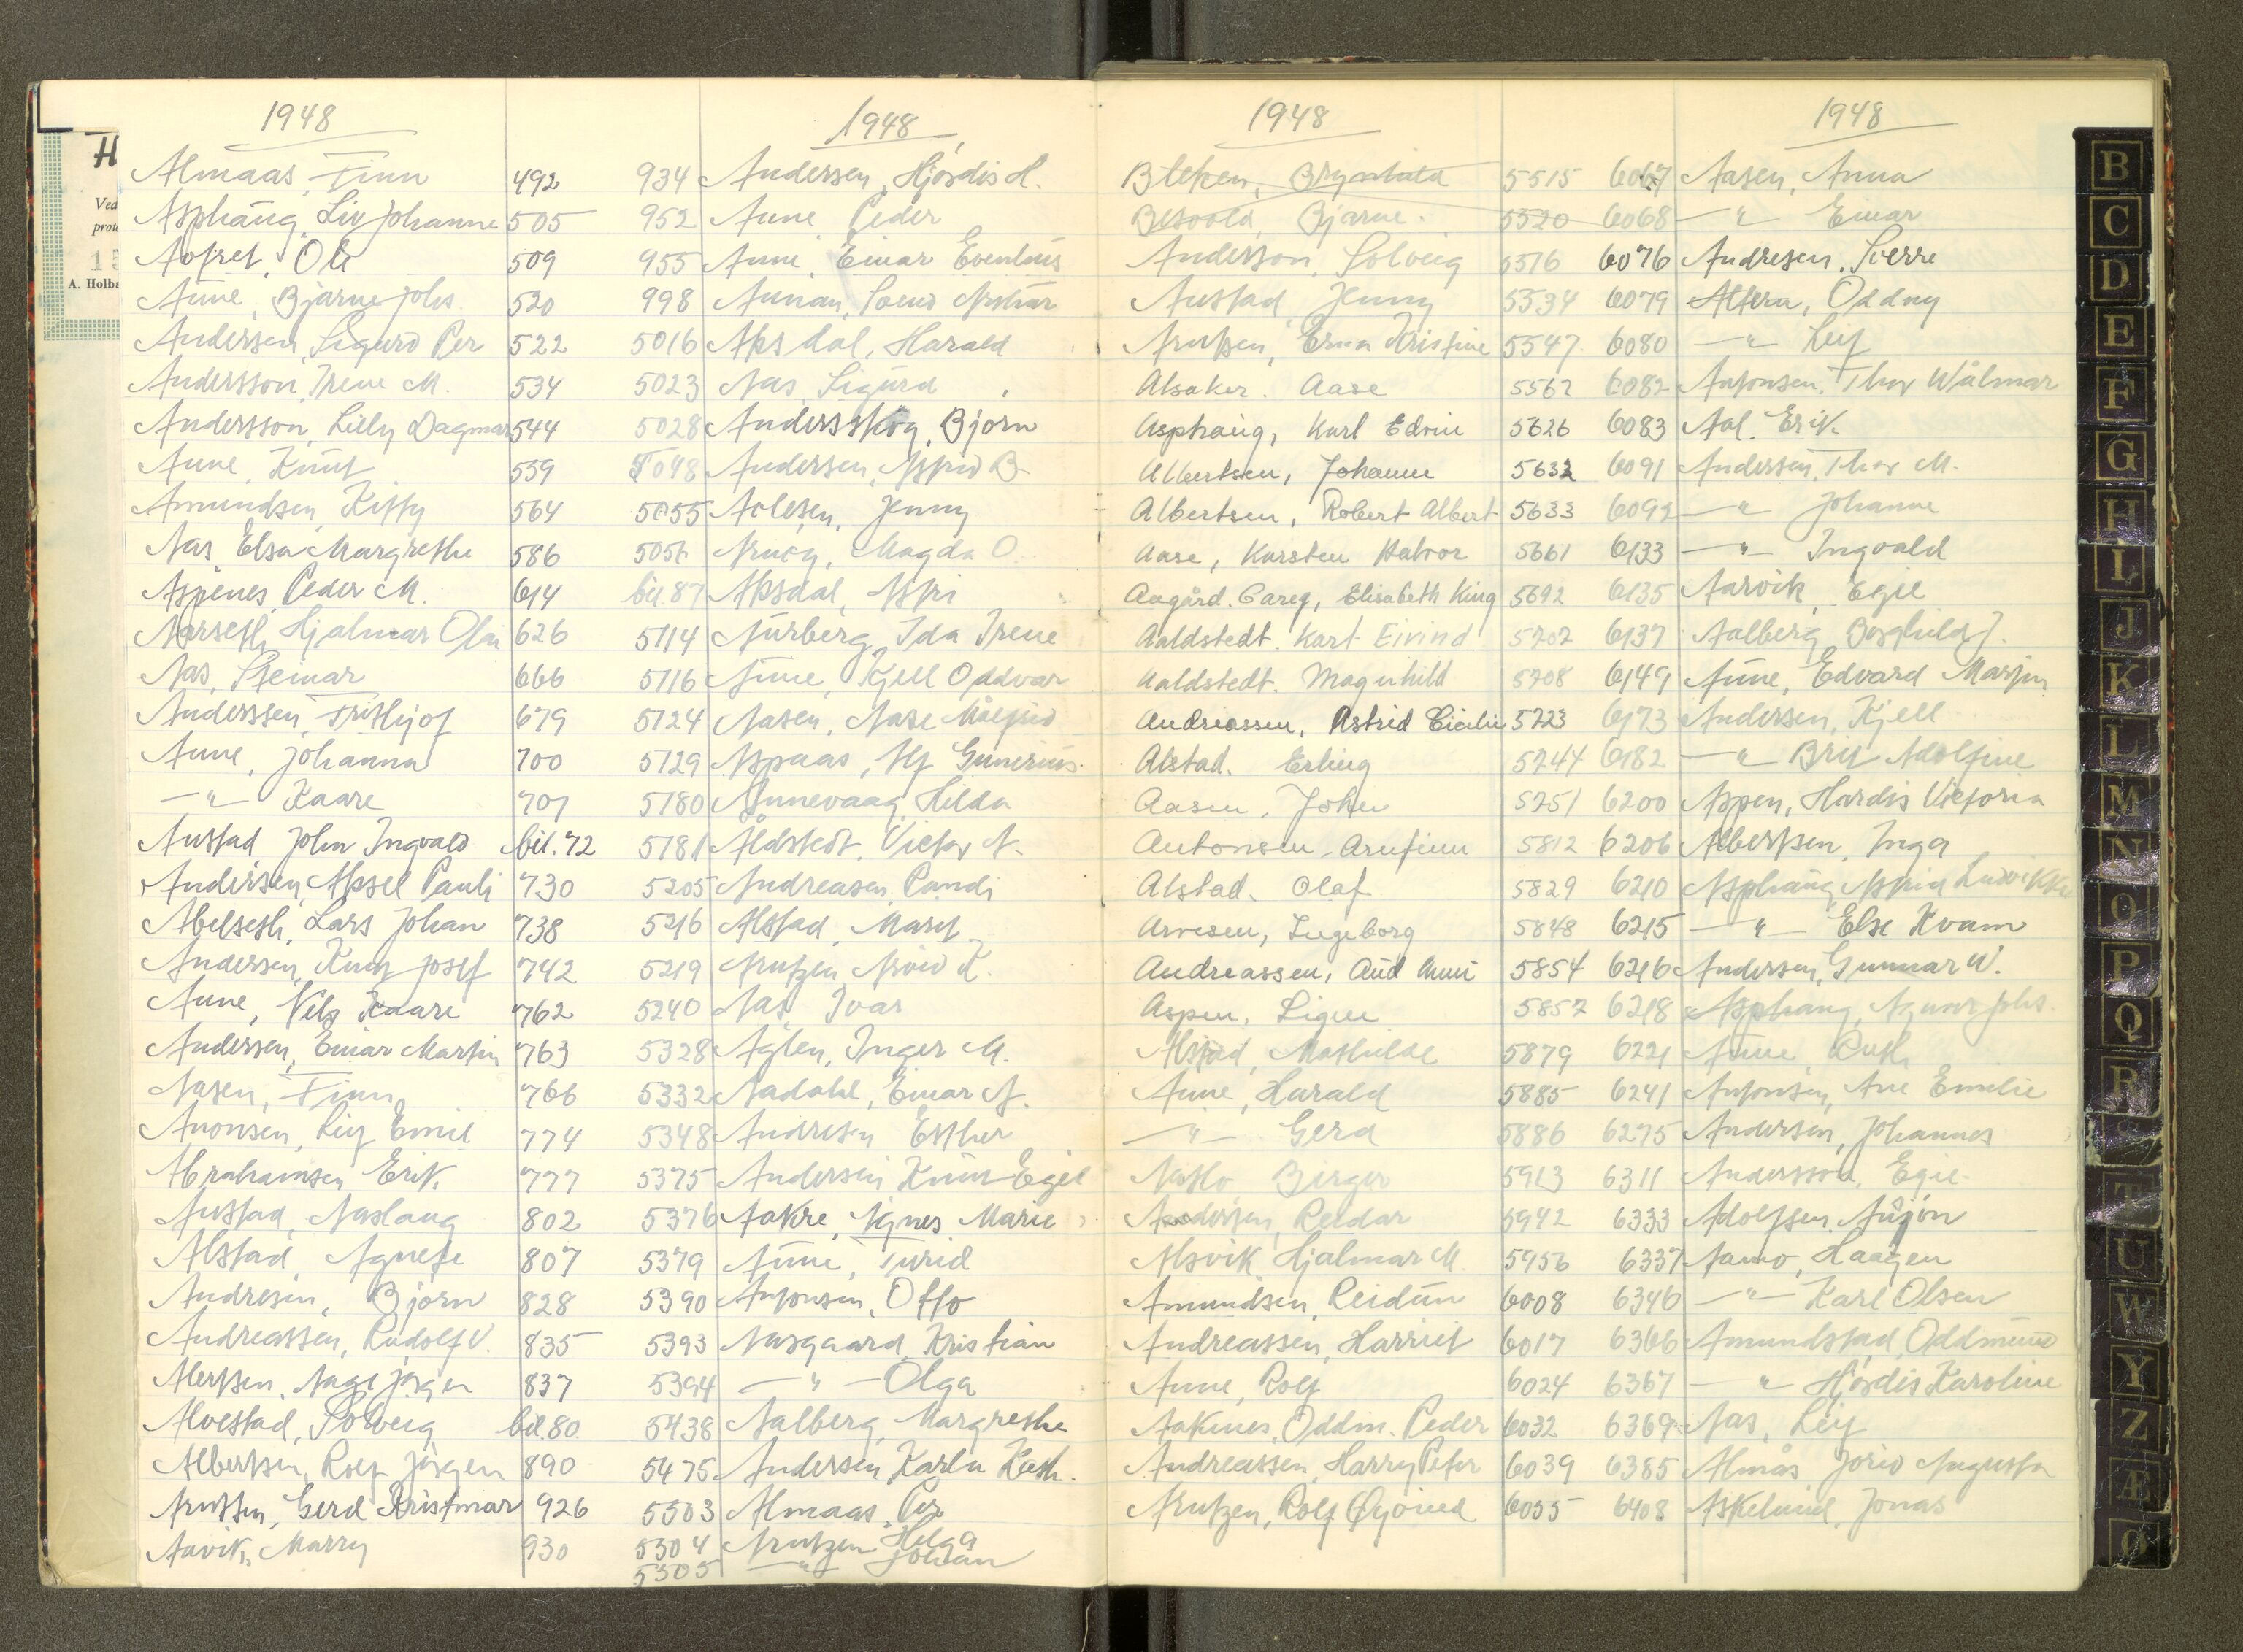 1948
Almaas, Finn 492
Asphaug, Liv Johanne 505
Ole 509
Aune, Bjarne Johs. 520
Andersen, Sigurd Per 522
Andersson, Irene M. 534
Andersson, Lilly Dagmar 544
Aune, Knut 559
Amundsen, Kitty 564
Aas Elsa Margrethe 586
Aspenes Peder M. 614
Aarseth, Hjalmar Olai 626
Aas, Steinar 666
Anderssen, Frithjof 679
Aune, Johanna 700
—"— Kaare 701
Austad John Ingvald bil. 72
Andersen, Aksel Pauli 730
Abelseth, Lars Johan 738
Andersen, Knut Josef 742
Aune, Nils Kaare 762
Andersen, Einar Martin 763
Aasen, Finn 766
Leif Emil 774
Abrahamsen Erik 777
Austad, Aaslaug 802
Alstad, Agnete 807
Andresen, Bjørn 828
Andreassen, Rudolf V. 835
Aage Jørgen 837
Alvestad, Solveig bil. 80
Albertsen, Rolf Jørgen 890
Arntsen, Gerd Kristmar 926
Aavik, Marry 930
1948
934 Andersen, Hjördis H.
952 Aune Peder
955 Aune, Einar Eventius
998 Aunan, Svend
5016 Aksdal, Harald
5023 Aas, Sigurd
5028 Andersskog, Bjørn
5048 Andersen, Astrid B.
5055 Jenny
5056 Magda O.
bil. 87 Aksdal, Astri
5114 Aurberg, Ida Irene
5116 Aune, Kjell Oddvar
5124 Aasen, Aase Målfrid
5129 Aspaas, Alf Gunerius
5180 Aunevaag, Hilda
5181 Åldstedt, Victor A.
5205 Andreasen, Randi
5216 Alstad, Marit
5219 Arntzen, Arvid K.
5240 Aas, Ivar
5328 Aglen, Inger M.
5332 Aadahl, Einar A.
5348 Andresen Esther
5375 Andersen Knut Egil
5376 Aakre, Agnes Marie
5379 Aune, Turid
5390 Antonsen, Otto
5393 Aasgaard, Kristian
5394 —"— Olga
5438 Aalberg, Margrethe
5475 Andersen, Karla Kath.
5503 Almaas, Per
5304 Arntzen Helga
5305 —"— Johan
1948
Bleken, 5515
Besvold, Bjarne. 5520
Andersson, Solveig 5516
Austad, Jenny 5534
Arntsen, Erna Kristine 5547
Alsaker. Aase 5562
Asphaug, Karl Edvin 5626
Albertsen, Johanne 5632
Albertsen, Robert Albert 5633
Aase, Karsten Halvor 5661
Aagård. Carey, Elisabeth King 5692
Aaldstedt. Karl Eivind 5702
Aaldstedt. Magnhild 5708
Andreassen, Astrid Cicilie 5723
Alstad. Erling 5744
Aasen, John 5751
Antonsen, Arnfinn 5812
Alstad. Olaf 5829
Arvesen, Ingeborg 5848
Andreassen, Aud Anni 5854
Aspen, Signe 5857
Alstad, Mathilde 5879
Aune, Harald 5885
—"— Gerd 5886
Birger 5913
Andersen, Reidar 5942
Alsvik, Hjalmar M. 5956
Amundsen, Reidun 6008
Andreassen, Harriet 6017
Aune, Rolf 6024
Aaknes, Oddm. Peder 6032
Andreassen, Harry Peter 6039
Arntzen, Rolf Øjvind 6055
1948
6067 Aasen, Anna
6068 —"— Einar
6076 Andresen, Sverre
6079 Altern, Oddny
6080 —"— Leif
6082 Antonsen, Thor Wålmar
6083 Aal, Erik
6091 Andersen, Thor M.
6092 —"— Johanne
6133 —"— Ingvald
6135 Aarvik, Egil
6137 Aalberg, Borghild J.
6149 Aune, Edvard Martin
6173 Andersen, Kjell
6182 —"— Brit Adolfine
6200 Aspen, Hardis Victoria
6206 Albertsen, Inga
6210 Asphaug, Astrid
6215 —"— Else Kvam
6216 Andersen, Gunnar W.
6218 Asphaug, Agnar Johs.
6221 Aune, Ruth
6241 Antonsen, Ane Emelie
6275 Andersen, Johannes
6311 Andersson, Egil
6333 Adolfsen, Aujon
6337 Aamo, Haagen
6346 —"— Karl Olsen
6366 Amundstad, Oddmund
6367 —"— Hjördis Karoline
6369 Aas, Leif
6385 Almås, Jorid Augusta
6408 Askelund, Jonas
B
C
D
E
F
G
H
I
J
K
L
M
N
O
P
Q
R
S
T
U
W
Y
Z
Æ
Ø
H
Ved
A. Holba